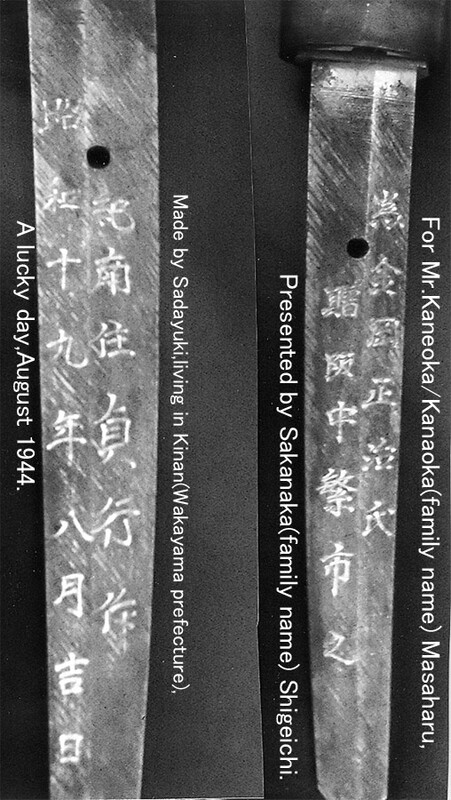 紀南住貞行作
昭和十九年八月吉日
Made by Sadayuki,living in Kinan(Wakayama prefecture),
A lucky day,August 1944.
為金岡正治氏
贈阪中繁市之
For Mr.Kaneoka/Kanaoka(family name) Masaharu,
Presented by Sakanaka(family name) Shigeichi.